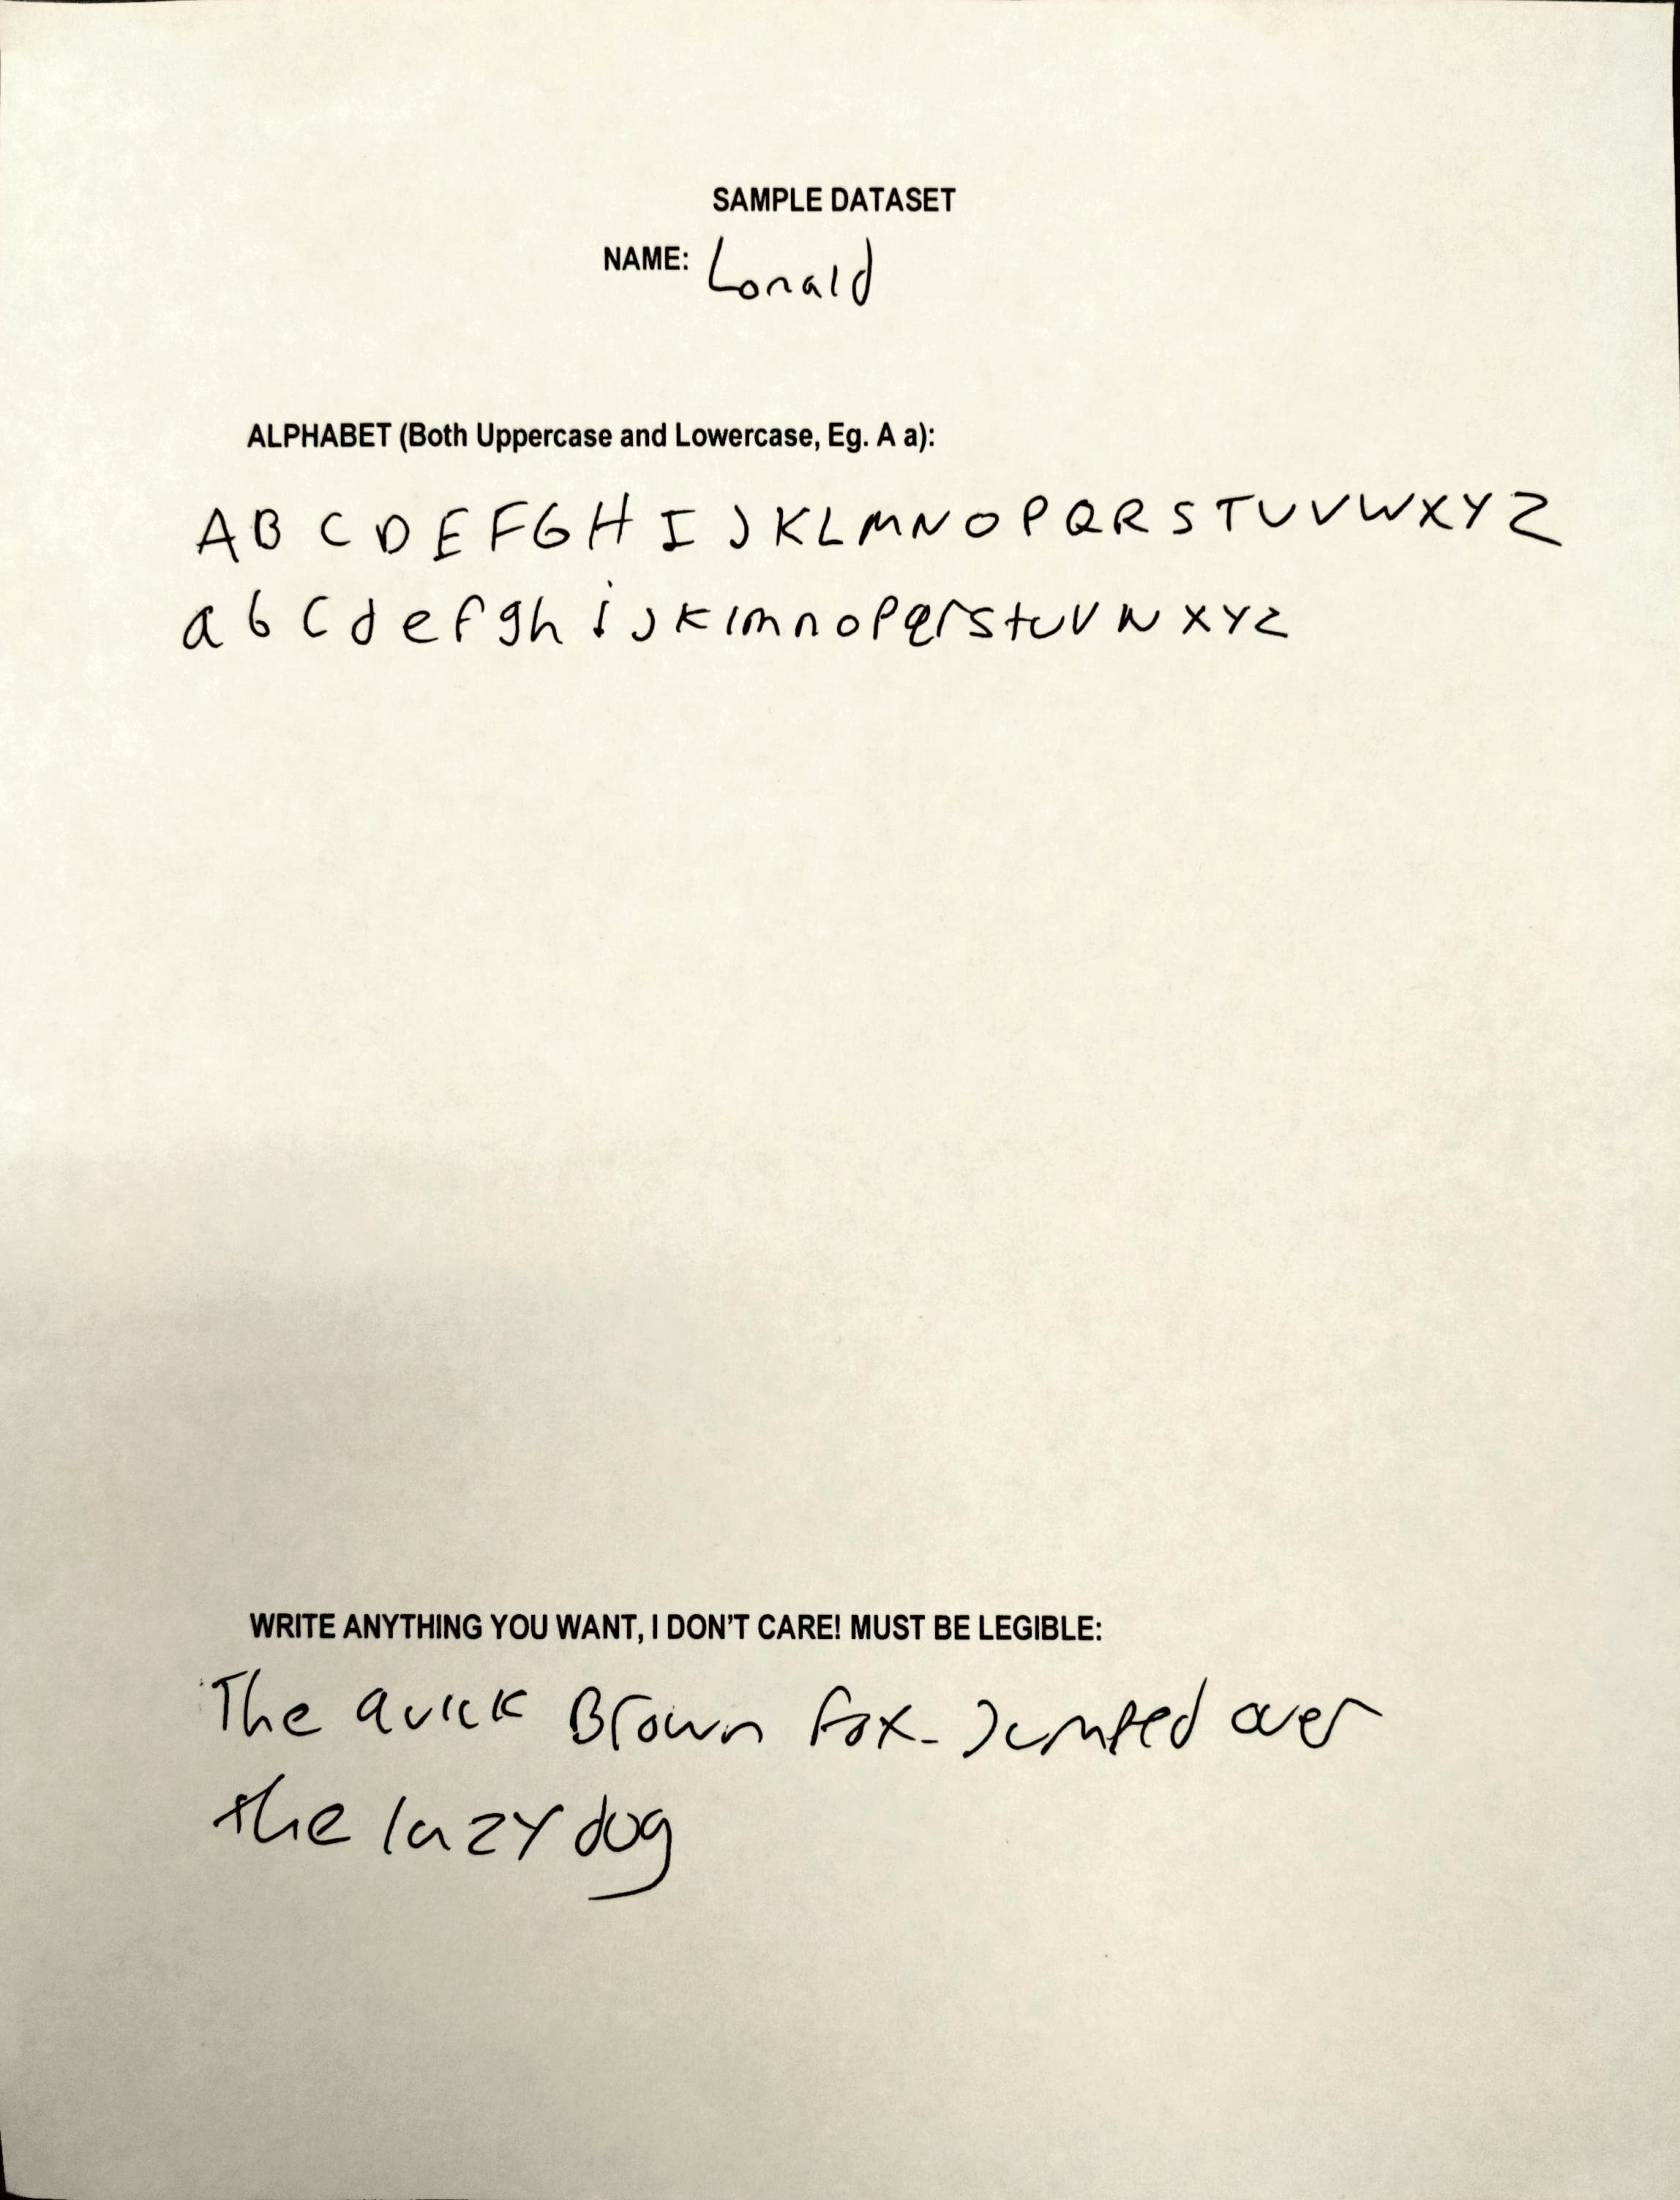 SAMPLE DATASET
NAME: Lonald
ALPHABET (Both Uppercase and Lowercase, Eg. A a):
A B C D E F G H I J K L M N O P Q R S T U V W X Y Z
a b c d e f g h i j k l m n o p q r s t u v w x y z
WRITE ANYTHING YOU WANT, I DON'T CARE! MUST BE LEGIBLE:
The quick Brown fox- Jumped over
the lazy dog